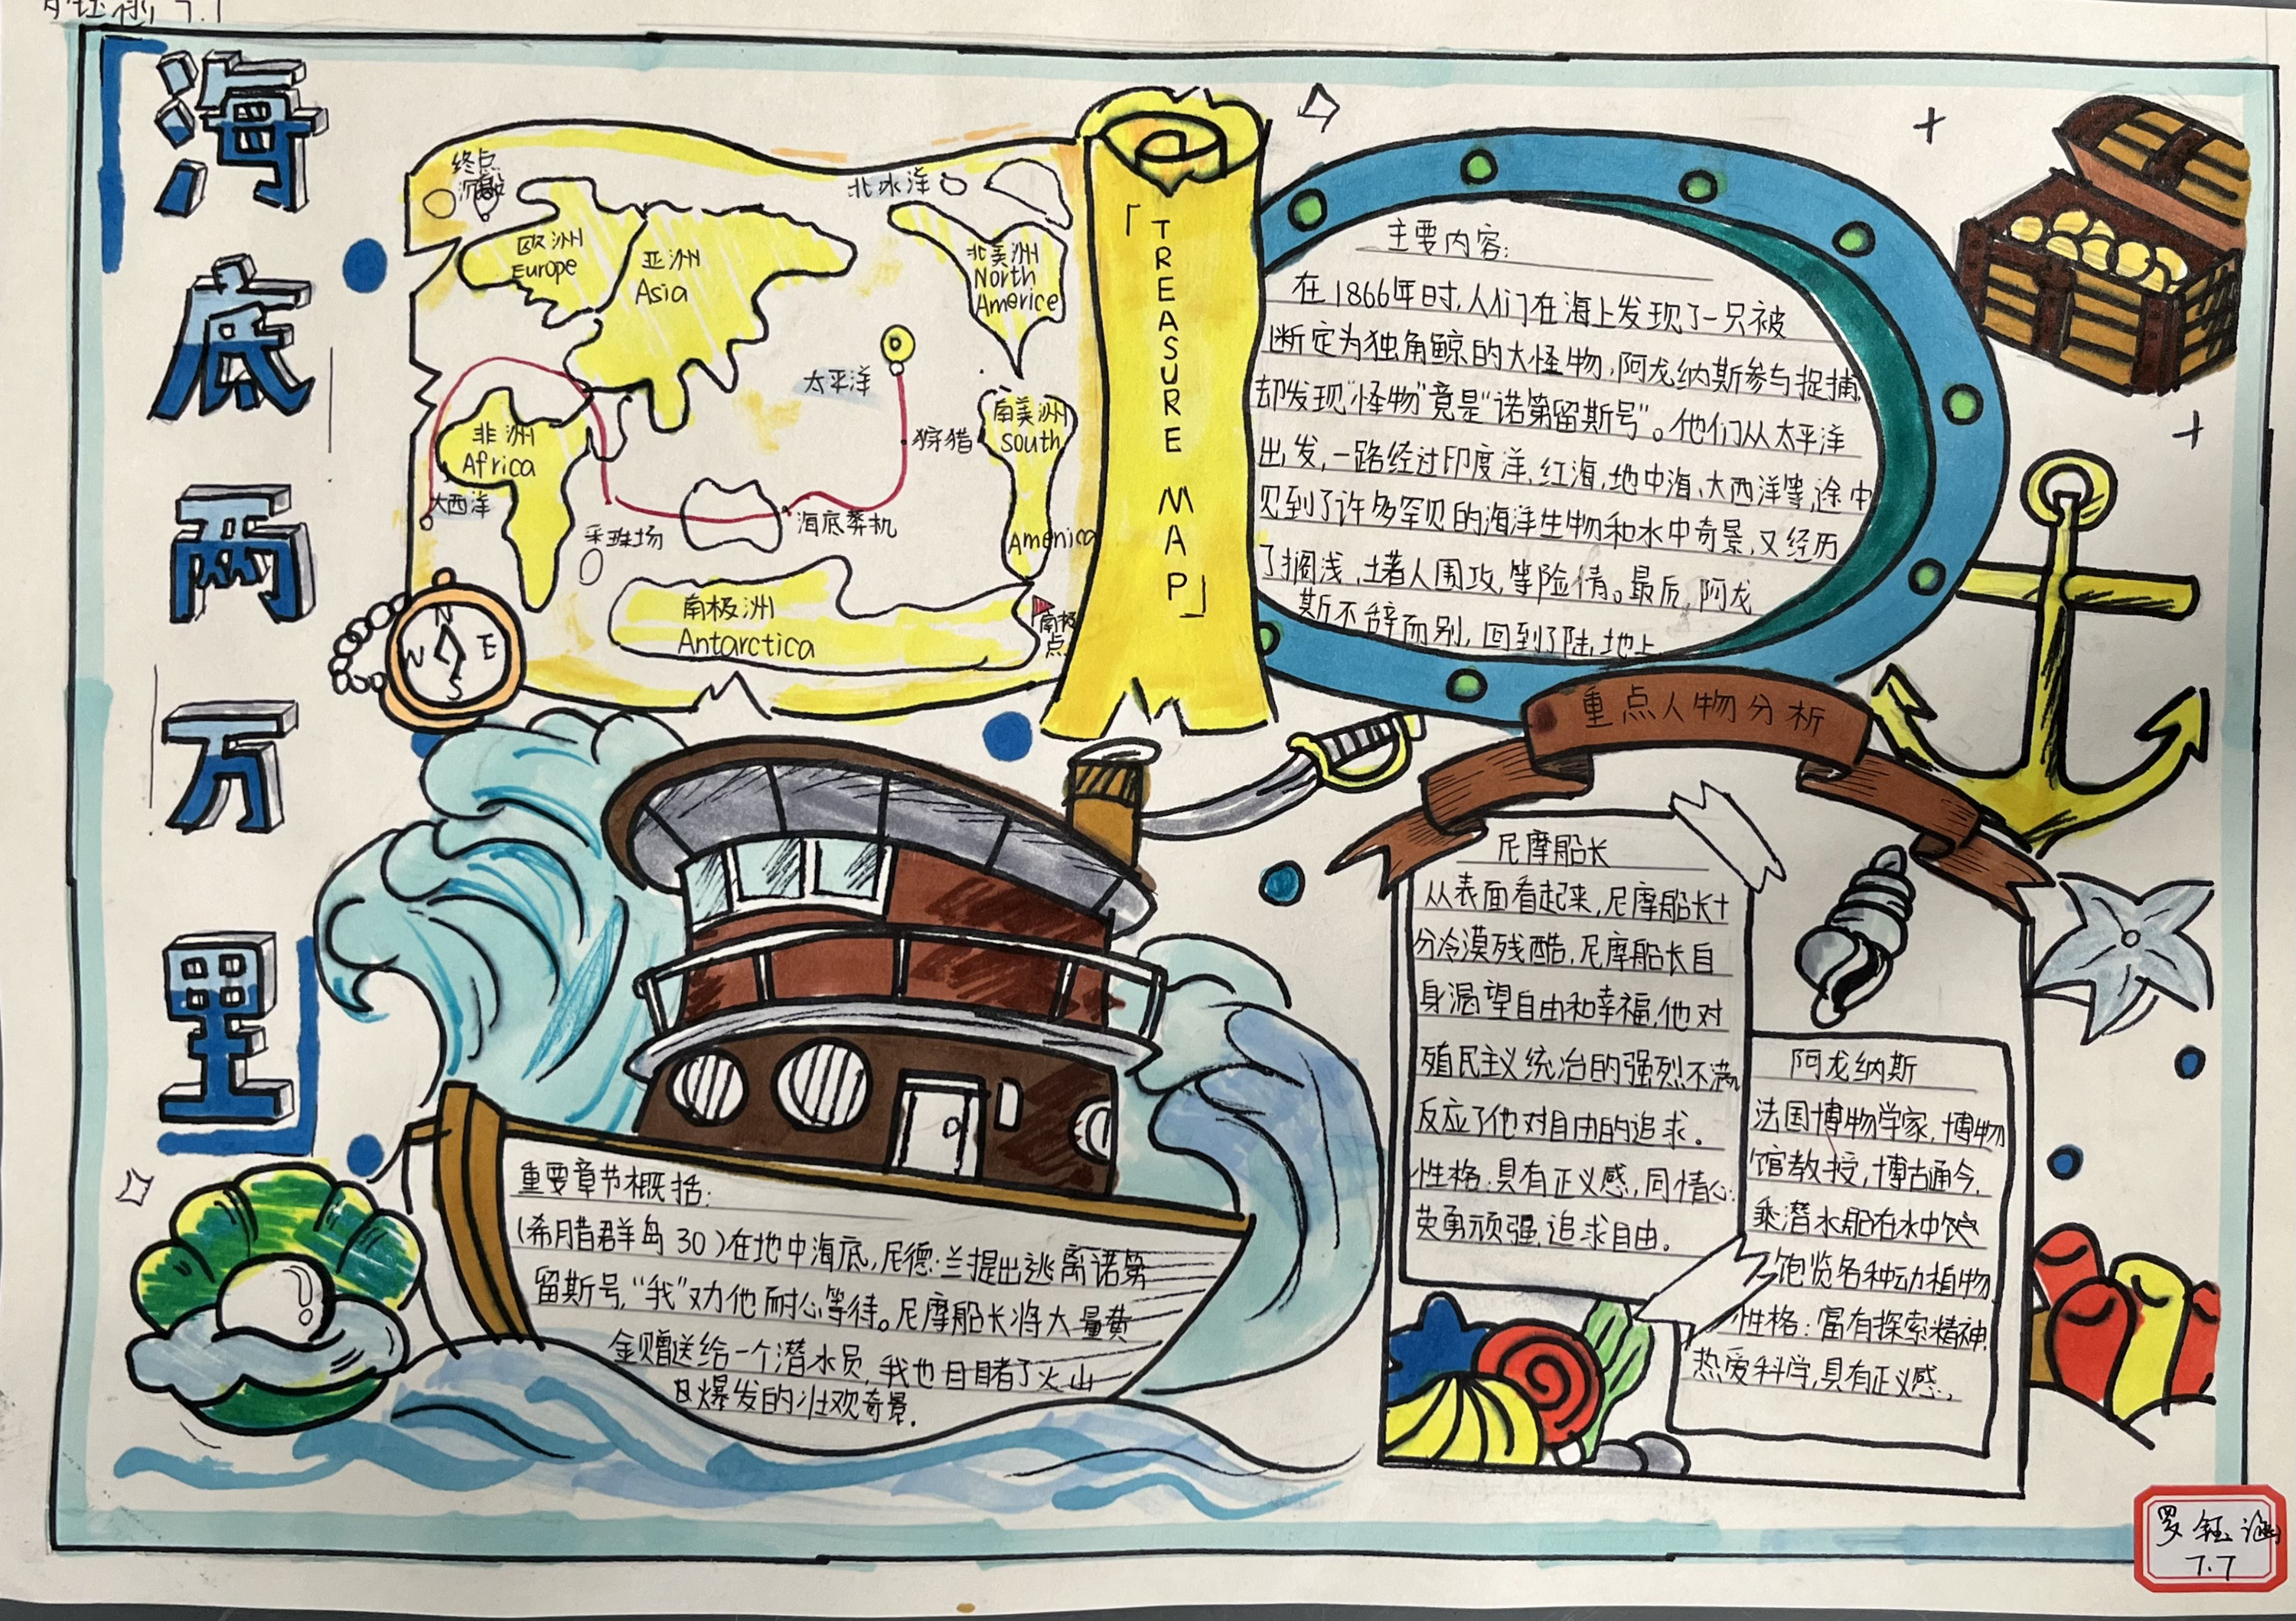 海底两万里
终点
北冰洋
欧洲
Europe
亚洲
Asia
北美洲
North
Americe
太平洋
狩猎
南美洲
South
America
非洲
Africa
大西洋
采珠场
海底葬机
南极洲
Antarctica
南极
点
N
W E
S
「TREASURE MAP」
主要内容:
在1866年时,人们在海上发现了一只被
断定为独角鲸的大怪物,阿龙纳斯参与捉捕,
却发现“怪物”竟是“诺第留斯号”。他们从太平洋
出发,一路经过印度洋,红海,地中海、大西洋等,途中
见到了许多罕见的海洋生物和水中奇景,又经历
了搁浅,土著人围攻,等险情。最后,阿龙
斯不辞而别,回到了陆地上
重点人物分析
尼摩船长
从表面看起来,尼摩船长十
分冷漠残酷,尼摩船长自
身渴望自由和幸福,他对
殖民主义统治的强烈不满,
反应了他对自由的追求。
性格:具有正义感,同情心.
英勇顽强,追求自由。
阿龙纳斯
法国博物学家,博物
馆教授,博古通今.
乘潜水船在水中
饱览各种动植物
性格:富有探索精神,
热爱科学,具有正义感.
重要章节概括:
(希腊群岛30)在地中海底,尼德·兰提出逃离诺第
留斯号,“我”劝他耐心等待。尼摩船长将大量黄
金赠送给一个潜水员,我也目睹了火山
爆发的壮观奇景.
罗钰涵
7.7